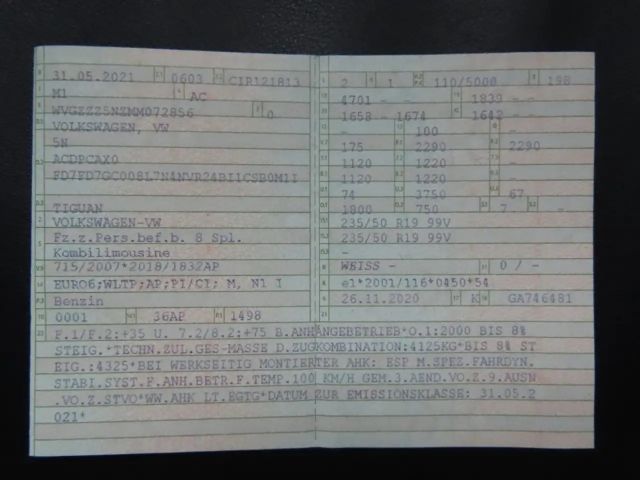 31.05.2021 0603 CIR121813
M1 AC
WVGZZZ5NZMM072856 0
VOLKSWAGEN, VW
5N
ACDPCAX0
FD7FD7GC008L7N4NVR24BI1CSB0M1I
TIGUAN
VOLKSWAGEN-VW
Fz.z.Pers.bef.b. 8 Spl.
Kombilimousine
715/2007*2018/1832AP
EURO6;WLTP;AP;PI/CI; M, N1 I
Benzin
0001 36AP 1498
2 1 110/5000 198
4701 - - 1839 - -
1658 - 1674 1642 - -
- 180 -
175 2290 2290
1120 1220 -
1120 1220 -
74 3750 67
1800 750 7 -
235/50 R19 99V
235/50 R19 99V
-
WEISS - 0 / -
e1*2001/116*0450*54
26.11.2020 K GA746481
F.1/F.2:+35 U. 7.2/8.2:+75 B.ANHÄNGEBETRIEB*O.1:2000 BIS 8%
STEIG.*TECHN.ZUL.GES-MASSE D.ZUGKOMBINATION:4125KG*BIS 8% ST
EIG.:4325*BEI WERKSEITIG MONTIERTER AHK: ESP M.SPEZ.FAHRDYN.
STABI.SYST.F.ANH.BETR.F.TEMP.100 KM/H GEM.3.AEND.VO.Z.9.AUSN
.VO.Z.STVO*WW.AHK LT.EGTG*DATUM ZUR EMISSIONSKLASSE: 31.05.2
021*